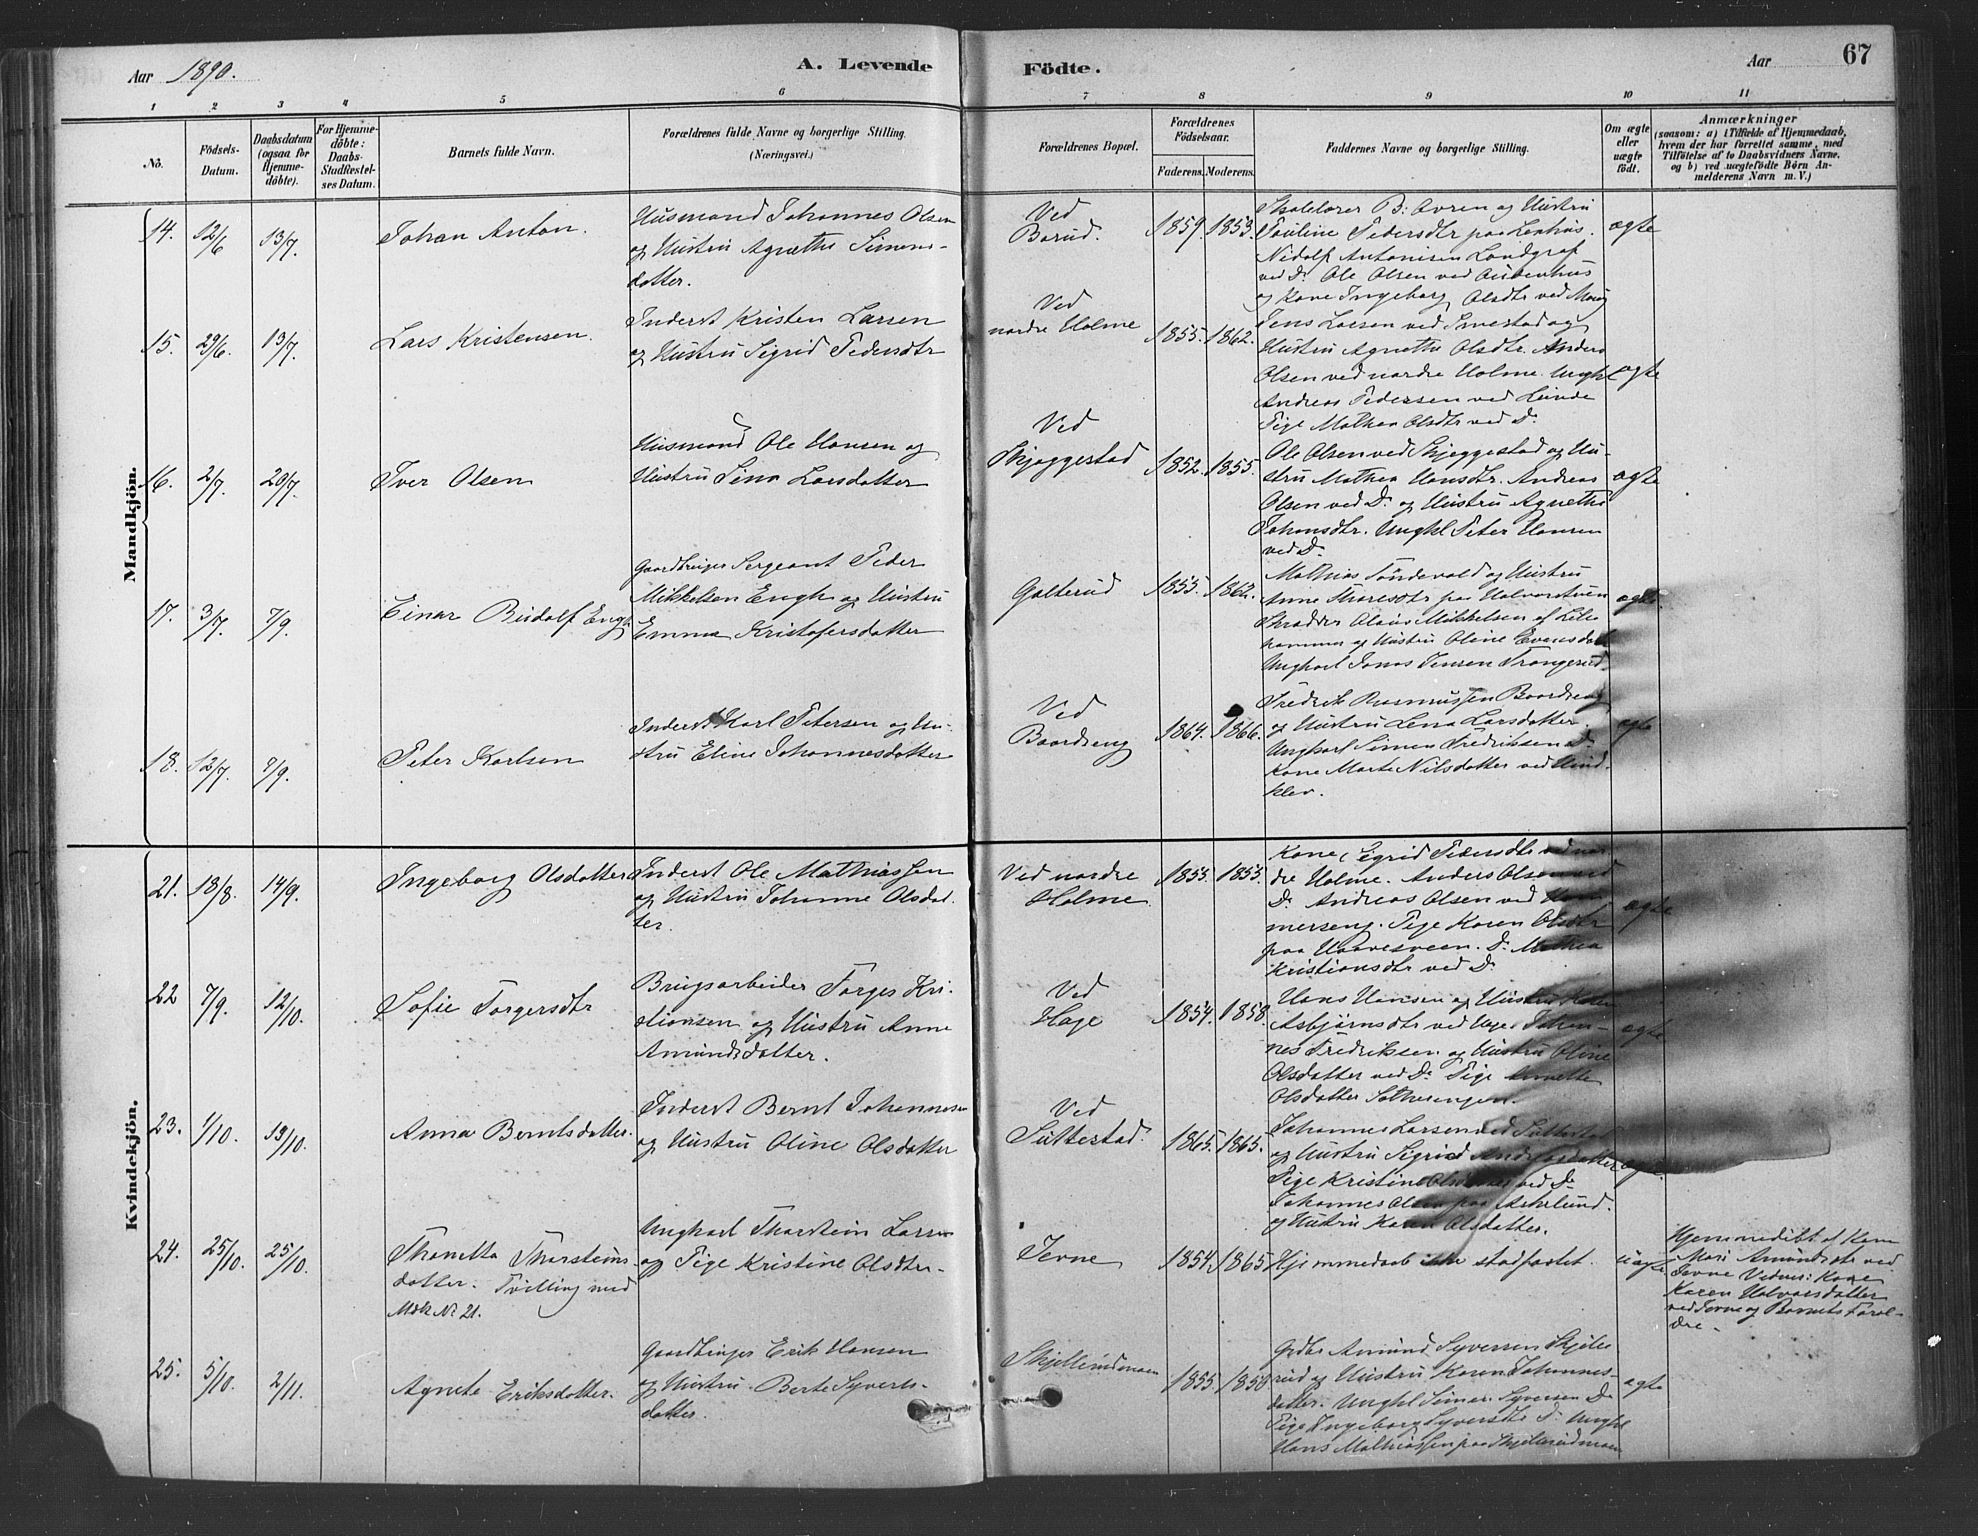 Aar 1890.
A. Levende Födte.
Aar
67
1 2 3 4 5 6 7 8 9 10 11
No.
Födsels-Datum.
Daabsdatum (ogsaa for Hjemme-döbte).
For Hjemme-döbte: Daabs-Stadfæstel-ses Datum.
Barnets fulde Navn.
Forældrenes fulde Navne og borgerlige Stilling.
(Næringsvei.)
Forældrenes Bopæl.
Forældrenes Födselsaar.
Faderens. Moderens.
Faddernes Navne og borgerlige Stilling.
Om ægte eller uægte födt.
Anmærkninger
(saasom: a) i Tilfælde af Hjemmedaab, hvem der har forrettet samme, med Tilföielse af to Daabsvidners Navne, og b) ved uægtefödte Börn Anmelderens Navn m. V.)
Mandkjön.
14. 12/6 13/7. Johan Anton.
Husmand Johannes Olsen
og Hustru Agnethe Simens-
datter.
Ved
Borud.
1859. 1853.
Skolelærer B: Avren og Hustru
Pauline Pedersdtr paa
Nidolf Antonisen Landgraf
ved Do Ole Olsen ved
og Kone Ingeborg Olsdtr ved
ægte
15. 29/6. 13/7. Lars Kristensen.
Inderst Kristen Larsen
og Hustru Sigrid Pedersdtr
Ved
nordre Holme
1855. 1862.
Jens Larsen ved Smestad og
Hustru Agnethe Olsdtr. Anders
Olsen ved nordre Holme. Ungkl
Andreas Pedersen ved Lunde
Pige Mathea Olsdtr ved Do
ægte
16. 2/7. 20/7. Iver Olsen
Husmand Ole Hansen og
Hustru Sina Larsdatter
Ved
Skjæggestad
1852. 1855.
Ole Olsen ved Skjeggestad og Hu-
stru Mathea Hansdtr. Andreas
Olsen ved Do og Hustru Agnethe
Johansdtr. Ungkl Peter Hansen
ved Do
ægte
17. 3/7. 7/9. Einar Rudolf Engh
Gaardbruger Sergeant Peder
Mikkelsen Engh og Hustru
Emma Kristofersdatter
Galterud
1853. 1862.
Mathias Tandevold og Hustru
Anne paa
Skrædder Olaus Mikkelsen af Lille
hammer og Hustru Oline Evensdatt
Ungkarl Jonas Jensen
ægte
18. 12/7. 7/9. Peter Karlsen
Inderst Karl Petersen og Hu-
stru Eline Johannesdatter
Ved
Baardseng
1864. 1866.
Fredrik Rasmussen Baardseng
og Hustru Lena Larsdatter.
Ungkarl Simen Fredriksen Do
Kone Marte Nilsdatter ved Hind
klev.
ægte
Kvindekjön.
21. 18/8. 14/9. Ingeborg Olsdatter
Inderst Ole Mathiassen
og Hustru Johanne Olsdat-
ter.
Ved nordre
Holme
1853. 1853.
Kone Sigrid Pedersdtr ved nor-
dre Holme. Anders Olsen ved
Do Andreas Olsen ved Ham
merseng. Pige Karen Olsdtr
paa Haavesveen. Do Mathea
Kristiansdtr ved Do
ægte
22 7/9. 12/10. Sofie Torgersdtr
Brugsarbeider Torges Kri-
stiansen og Hustru Anne
Amundsdatter.
Ved
Hage
1854. 1858.
Hans Hansen og Hustru
Asbjørnsdtr ved Hage Johan-
nes Fredriksen og Hustru Oline
Olsdatter ved Do Pige Annette
Olsdatter Sætherengen.
ægte
23. 1/10. 19/10. Anna Berntsdatter.
Inderst Bernt Johannesen
og Hustru Oline Olsdatter
Ved
Suttestad.
1865. 1865.
Johannes Larsen ved Suttestad
og Hustru Sigrid Andreasdatter
Pige Kristine ved Do
Johannes Olsen paa Askelund.
og Hustru Karen Olsdatter.
ægte
24. 25/10. 25/10. Thonetta Thorsteins-
datter. Tvilling med
Mdk No 21.
Ungkarl Thorstein Larsen
og Pige Kristine Olsdtr.
Jevne
1854. 1865
Hjemmedaab ikke stadfæstet.
uægte
Hjemmedöbt af Kone
Mari Amundsdtr ved
Jevne Vidner: Kone
Karen Halvorsdatter
ved Jevne og Barnets Foræl-
dre.
25. 5/10. 2/11. Agnete Eriksdatter.
Gaardbruger Erik Hansen
og Hustru Berte Syverts-
datter.
Skjellerudmoen
1855. 1850
Grdbr Amund Syversen Skjelle
rud og Hustru Karen Johannes-
datter. Ungkl Simen Syversen Do
Pige Ingeborg Syversdtr Do Ungkl
Hans Mathiassen paa Skjellerudmoen
ægte